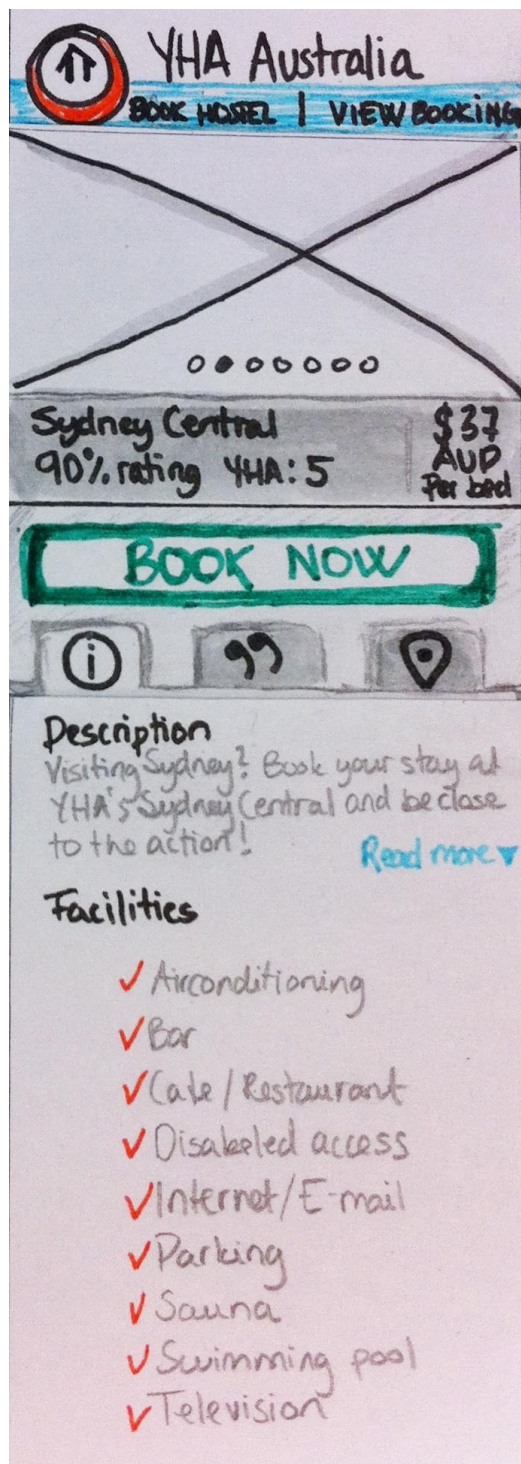 YHA Australia
BOOK HOSTEL | VIEW BOOKING
Sydney Central
90% rating YHA: 5
$37
AUD
Per bed
BOOK NOW
i
Description
Visiting Sydney? Book your stay at
YHA's Sydney Central and be close
to the action!
Read more
Facilities
Airconditioning
Bar
Cafe / Restaurant
Disabeled access
Internet/E-mail
Parking
Sauna
Swimming pool
Television